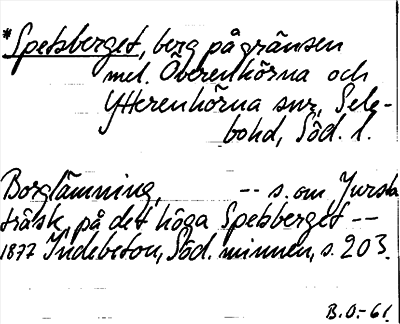 *Spetsberget, berg på gränsen
mel. Överenhörna och
Ytterenhörna snr, Sele-
bohd, Söd. l.
Borglämning, -- s. om Jursta
träsk på det höga Spetsberget --
1877 Indebetou, Söd. minnen, s. 203.
B.O.-61.